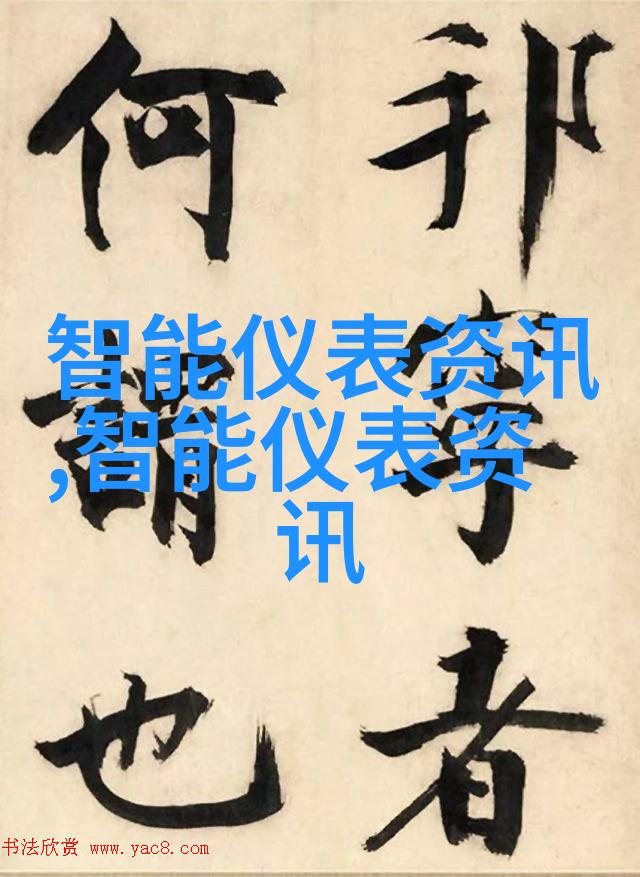 邦寧者
何謂也
智能仪表资讯
,智能仪表资
讯
书法欣赏 www.yac8.com